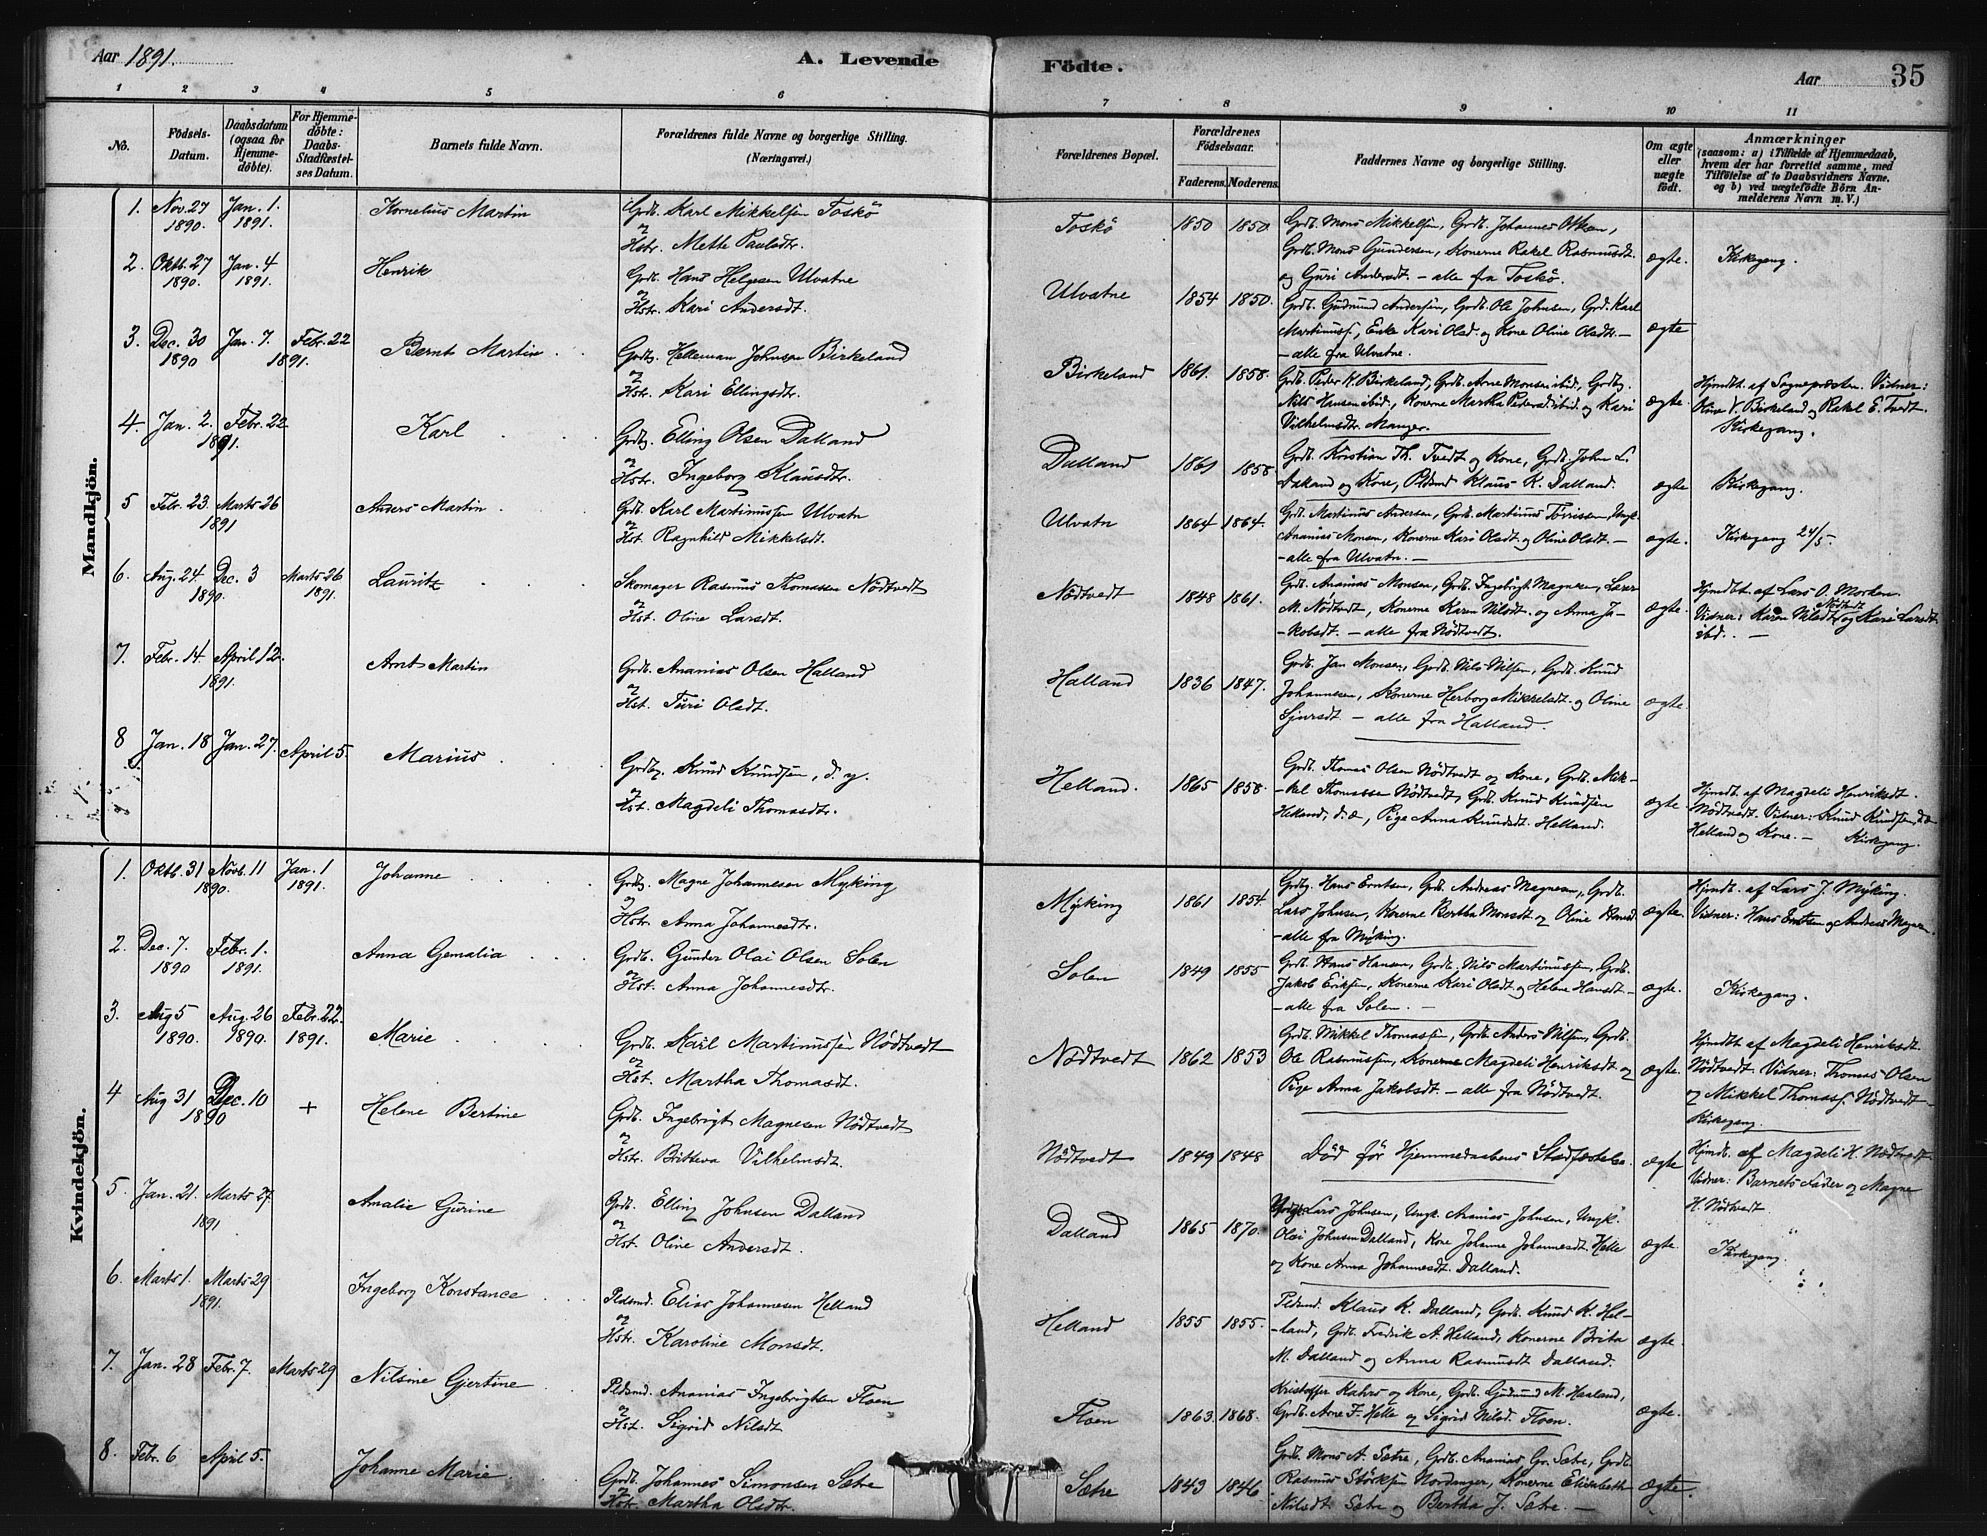 Aar 1891.
A. Levende Födte.
Aar 35
1 2 3 4 5 6 7 8 9 10 11
No.
Födsels-Datum.
Daabsdatum (ogsaa for Hjemme-döbte).
For Hjemme-döbte: Daabs-Stadfæstel-ses Datum.
Barnets fulde Navn.
Forældrenes fulde Navne og borgerlige Stilling.
(Næringsvei.)
Forældrenes Bopæl.
Forældrenes Födselsaar.
Faderens. Moderens.
Faddernes Navne og borgerlige Stilling.
Om ægte eller uægte födt.
Anmærkninger
(saasom: a) i Tilfælde af Hjemmedaab, hvem der har forrettet samme, med Tilföielse af to Daabsvidners Navne, og b) ved uægtefödte Börn An-melderens Navn m. V.)
Mandkjön.
1. Nov. 27 1890. Jan. 1. 1891. Kornelius Martin
Grdb. Karl Mikkelsen Toskö
og Hstr. Mette Paulsdtr.
Toskö 1850 1850
Grdb. Mons Mikkelsen, Grdb. Johannes Olsen,
Grdb. Mons Gundersen, Konerne Rakel Rasmusdt.
og Guri Andersdt. - alle fra Toskö.
ægte. Kirkegang.
2. Oktb. 27 1890. Jan. 4 1891. Henrik
Grdb. Hans Helgesen Ulvatne
og Hstr. Kari Andersdt.
Ulvatne 1854 1850.
Grdb. Gudmund Andersen, Grdb. Ole Johnsen, Grd. Karl
Martinuss., Enke Kari Olsd. og Kone Oline Olsdtr. -
- alle fra Ulvatne.
ægte
3. Dec. 30 1890 Jan. 7. Febr. 22 1891. Bernt Martin
Grdbg. Helleman Johnsen Birkeland
og Hstr. Kari Ellingsdtr.
Birkeland 1861. 1858.
Grdb. Peder N. Birkeland, Grdb. Arne Monsen ibid., Grdbg.
Nils Hansen ibid., Konerne Martha Pedersd. ibid. og Kari
Vilhelmsdtr. Manger.
ægte. Hjmdbt. af Sognepræsten. Vidner:
Oline V. Birkeland og Rakel E. Tvedt.
Kirkegang.
4. Jan. 2. Febr. 22 1891. Karl
Grdbg. Elling Olsen Dalland
og Hstr. Ingeborg Klausdtr.
Dalland 1861 1858
Grdb. Kristian Th. Tvedt og Kone, Grdb. John L.
Dalland og Kone, Pldsmd Klaus K. Dalland.
ægte Kirkegang.
5 Febr. 23. Marts 26 1891 Anders Martin
Grdb. Karl Martinussen Ulvatn
og Hst. Ragnhild Mikkelsdt.
Ulvatn 1864 1864.
Grd. Martinus Andersen, Grdb. Martinus Törissen, Ungk.
Ananias Monsen, Konerne Kari Olsdt. og Oline Olsdt. -
- alle fra Ulvatn. -
ægte. Kirkegang 24/5.
6. Aug. 24. Dec. 3 1890. Marts 26 1891. Lauritz
Skomager Rasmus Thomassen Nödtvedt
og Hst. Oline Larsdt.
Nödtvedt 1848 1861.
Grdb. Ananias Monsen, Grdb. Ingebrigt Magnesen, Lærer
M. Nödtvedt, Konerne Karen Nilsdt. og Anna Ja-
-kobsdt. - alle fra Nödtvedt.
ægte. Hjmdbt. af Lars O. Morken
Vidner: Karen Nilsdt. Nödtvedt og Kari Larsdt.
ibd. -
7. Febr. 14. April 12. 1891. Arnt Martin
Grdb. Ananias Olsen Halland
og Hst. Turi Olsdt.
Halland 1836 1847.
Grdb. Jan Monsen, Grdb. Nils Nilsen, Grdb. Knud
Johannesen, Konerne Herborg Mikkelsdt. og Oline
Sjursdt - alle fra Halland.
ægte.
8 Jan. 18 Jan. 27. April 5. Marius
Grdbg. Knud Knudsen, d. y.
og Hst. Magdeli Thomasdtr.
Helland. 1865 1858.
Grdb. Thomas Olsen Nödtvedt og Kone, Grdb. Mik-
-kel Thomassen Nödtvedt, Grdb. Knud Knudsen
Helland, d. æ, Pige Anna Knudsdt. Helland.
ægte Hjmdt. af Magdeli Henriksdt.
Nödtvedt. Vidner: Knud Knudsen, d. æ
Helland og Kone. - Kirkegang.
Kvindekjön.
1. Oktb. 31 Novb. 11 1890. Jan. 1 1891. Johanne
Grdbg. Magne Johannesen Myking
og Hstr. Anna Johannesdtr.
Myking 1861 1854
Grdbg. Hans Erntsen, Grdb. Andreas Magnesen, Grdb.
Lars Johnsen, Konerne Bertha Monsdt og Oline Hansd.
- alle fra Myking.
ægte. Hjmdt. af Lars J. Myking.
Vidner: Hans Erntsen og Andreas Magnesen.
2. Dec. 7. 1890 Febr. 1. 1891. Anna Gemalia
Grdb. Gunder Olai Olsen Solen
og Hst. Anna Johannesdtr.
Solen 1849 1855
Grdb. Hans Hansen, Grdb. Nils Martinussen, Grdb.
Jakob Eriksen, Konerne Kari Olsdt. og Helene Hansdt. -
- alle fra Solen. -
ægte. Kirkegang.
3. Aug 5 1890. Aug. 26 1890. Febr. 22. 1891. Marie
Grdb. Karl Martinussen Nödtvedt
og Hst. Martha Thomasdt.
Nödtvedt 1862 1853
Grdb. Mikkel Thomassen, Grdb. Anders Nilsen, Grdb.
Ole Rasmussen, Konerne Magdeli Henriksdt og
Pige Anna Jakobsdt. - alle fra Nödtvedt.
ægte. Hjmdt af Magdeli Henriksdt.
Nödtvedt. Vidner: Thomas Olsen
og Mikkel Thomass. Nödtvedt -
Kirkegang.
4 Aug 31 Dec. 10 1890 + Helene Bertine
Grdb. Ingebrigt Magnesen Nödtvedt
og Hst. Britteva Vilhelmsdt.
Nödtvedt 1849 1848
Död för Hjemmedaabens Stadfæstelse.
ægte Hjmdt. af Magdeli H. Nödtvedt
Vidner: Barnets Fader og Magne
H. Nödtvedt.
5. Jan. 21. Marts 27. 1891 Amalie Gurine
Grdb. Elling Johnsen Dalland
og Hst. Oline Andersdt.
Dalland 1865 1870.
Lars Johnsen, Ungk. Ananias Johnsen, Ungk.
Olai Johnsen Dalland, Kone Johanne Johannesdt. Helle
og Kone Anna Johannesdt. Dalland.
ægte. Kirkegang.
6. Marts 1. Marts 29 1891. Ingeborg Konstance
Pldsmd. Elias Johannesen Helland
og Hstr. Karoline Monsdt.
Helland 1855 1855.
Pldsmd. Klaus K. Dalland, Grdb. Knud K. Hel-
-land, Grdb. Fredrik A. Helland, Konerne Brita
M. Dalland og Anna Rasmusdt Dalland.
ægte.
7. Jan. 28 Febr. 7. Marts 29 Nilsine Gjertine
Pldsmd. Ananias Ingebrigtsen Floen
og Hst. Sigrid Nilsdt
Floen 1863. 1868.
Kristoffer Kahrs og Kone, Grdb. Gudmund M. Haaland,
Grdb. Arne F. Helle og Sigrid Nilsd. Floen.
ægte.
8. Febr. 6 April 5. Johanne Marie
Grdb. Johannes Simonsen Sætre
og Hstr. Martha Olsdtr.
Sætre 1843 1846
Grdb. Mons A. Sætre, Grdb. Ananias Gr. Sætre, Grdb.
Rasmus Störksen Nordanger, Konerne Elisabeth
Nilsdt Sætre og Bertha J. Sætre. -
ægte.